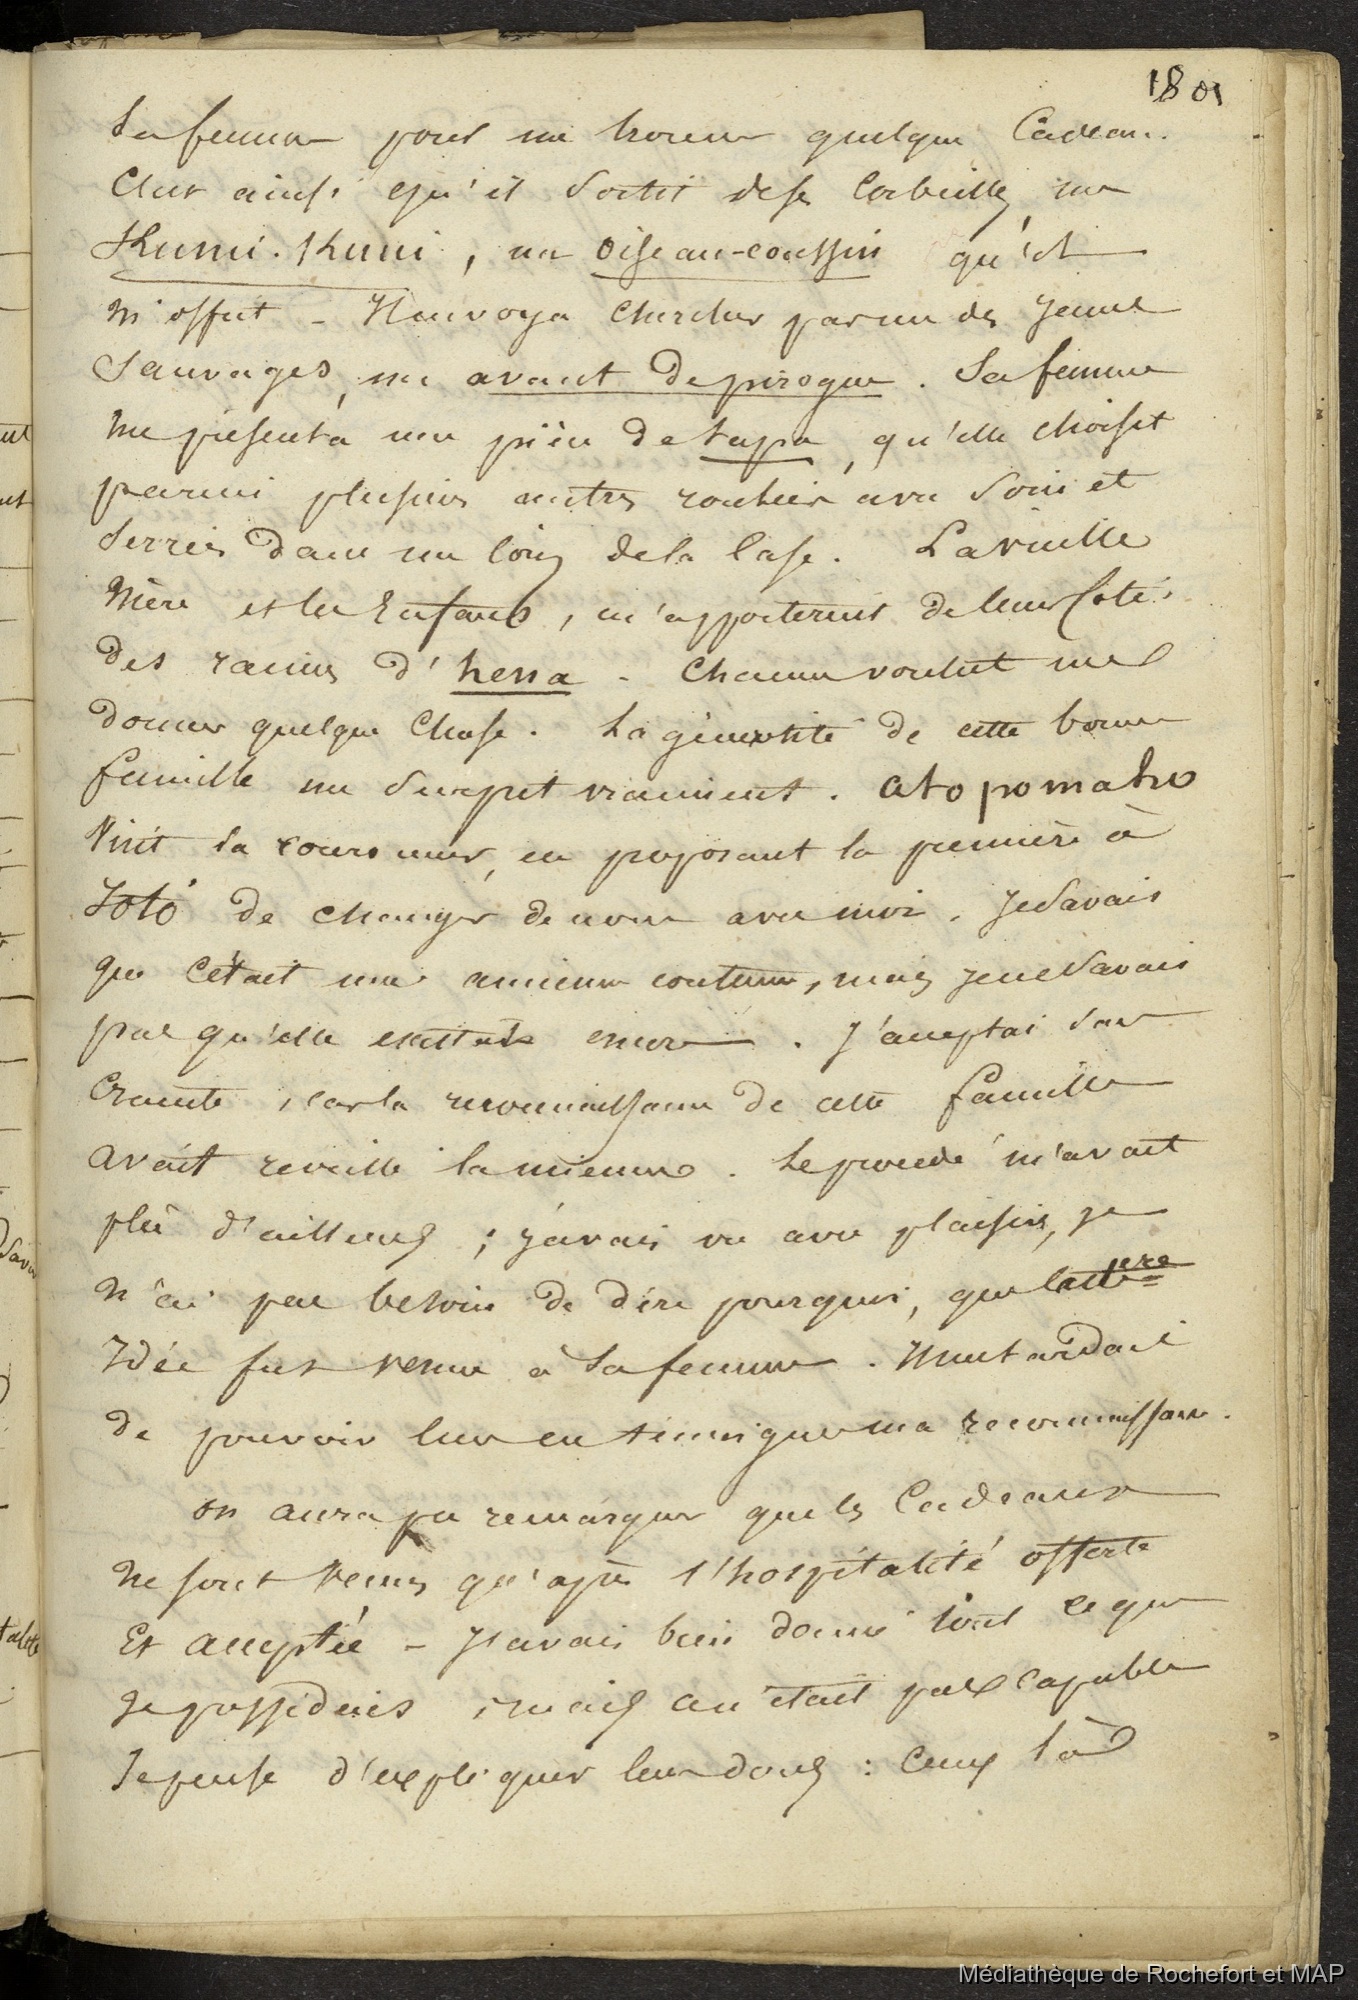 1801
Sa femme pour me trouver quelque Cadeau.
C'est ainsi qu'il sortit de ses Corbeilles, un
Kumi-Kuni, un oiseau-coussin qu'il
m'offrit – Il envoya chercher parmi des jeunes
Sauvages, un avant de pirogue. Sa femme
me présenta une pièce de tapa, qu'elle choisit
parmi plusieurs autres roulées avec soin et
serrées dans un coin de la Case. La vieille
Mère et les Enfans, m'apportèrent de leur Coté,
des racines d'hena – Chacun voulut me
donner quelque Chose. La générosité de cette bonne
famille me surprit vraiment. Atopomatro
Vint la couronner, en proposant la première à
Toto de changer de nom avec moi. Je savais
que C'était une ancienne coutume, mais je ne savais
pas qu'elle existait encore. J'acceptai sans
Crainte, car la reconnaissance de cette famille
avait réveillé la mienne. Le procédé m'avait
plû d'ailleurs; j'avais vu avec plaisir, je
n'ai pas besoin de dire pourquoi, que la 1ere
Idée fut venue à Sa femme. Il me tardait
de pouvoir leur en témoigner ma reconnaissance.
On aura pu remarquer que les Cadeaux
ne sont venus qu'après l'hospitalité offerte
Et acceptée – J'avais bien donné tout ce que
Je possédais, mais ce n'était pas capable
Je pense d'expliquer leurs dons : Ceux là
Médiathèque de Rochefort et MAP